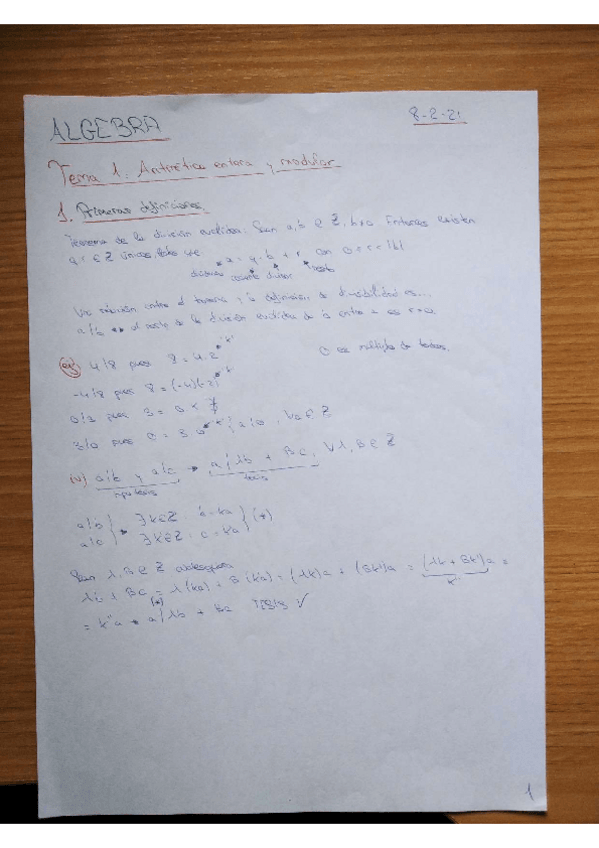 ALGEBRA
8-2-21
Tema 1: Aritmética entera y modular
1. Primeras definiciones
Teorema de la división euclídea: Sean a, b ∈ Z, b≠0. Entonces existen
q, r ∈ Z únicos, tales que a = q·b + r con 0 ≤ r < |b|
dividendo cociente divisor resto
Una relación entre el teorema y la definición de divisibilidad es...
a/b ↔ el resto de la división euclídea de b entre a es r=0
ej: 4/8 pues 8 = 4·2
0 es múltiplo de todos.
-4/8 pues 8 = (-4)(-2)
0/3 pues 3 = 0 ·
3/0 pues 0 = 3·0 a/0, ∀a ∈ Z
iv) a/b y a/c → a/λb + βc, ∀λ, β ∈ Z
hipótesis tesis
a/b } ∃k∈Z : b = ka } (*)
a/c } ∃k'∈Z : c = k'a
Sean λ, β ∈ Z cualesquiera
λb + βc = λ(ka) + β(k'a) = (λk)a + (βk')a = (λk + βk')a =
k''
= k''a → a/λb + βc TESIS ✓
1